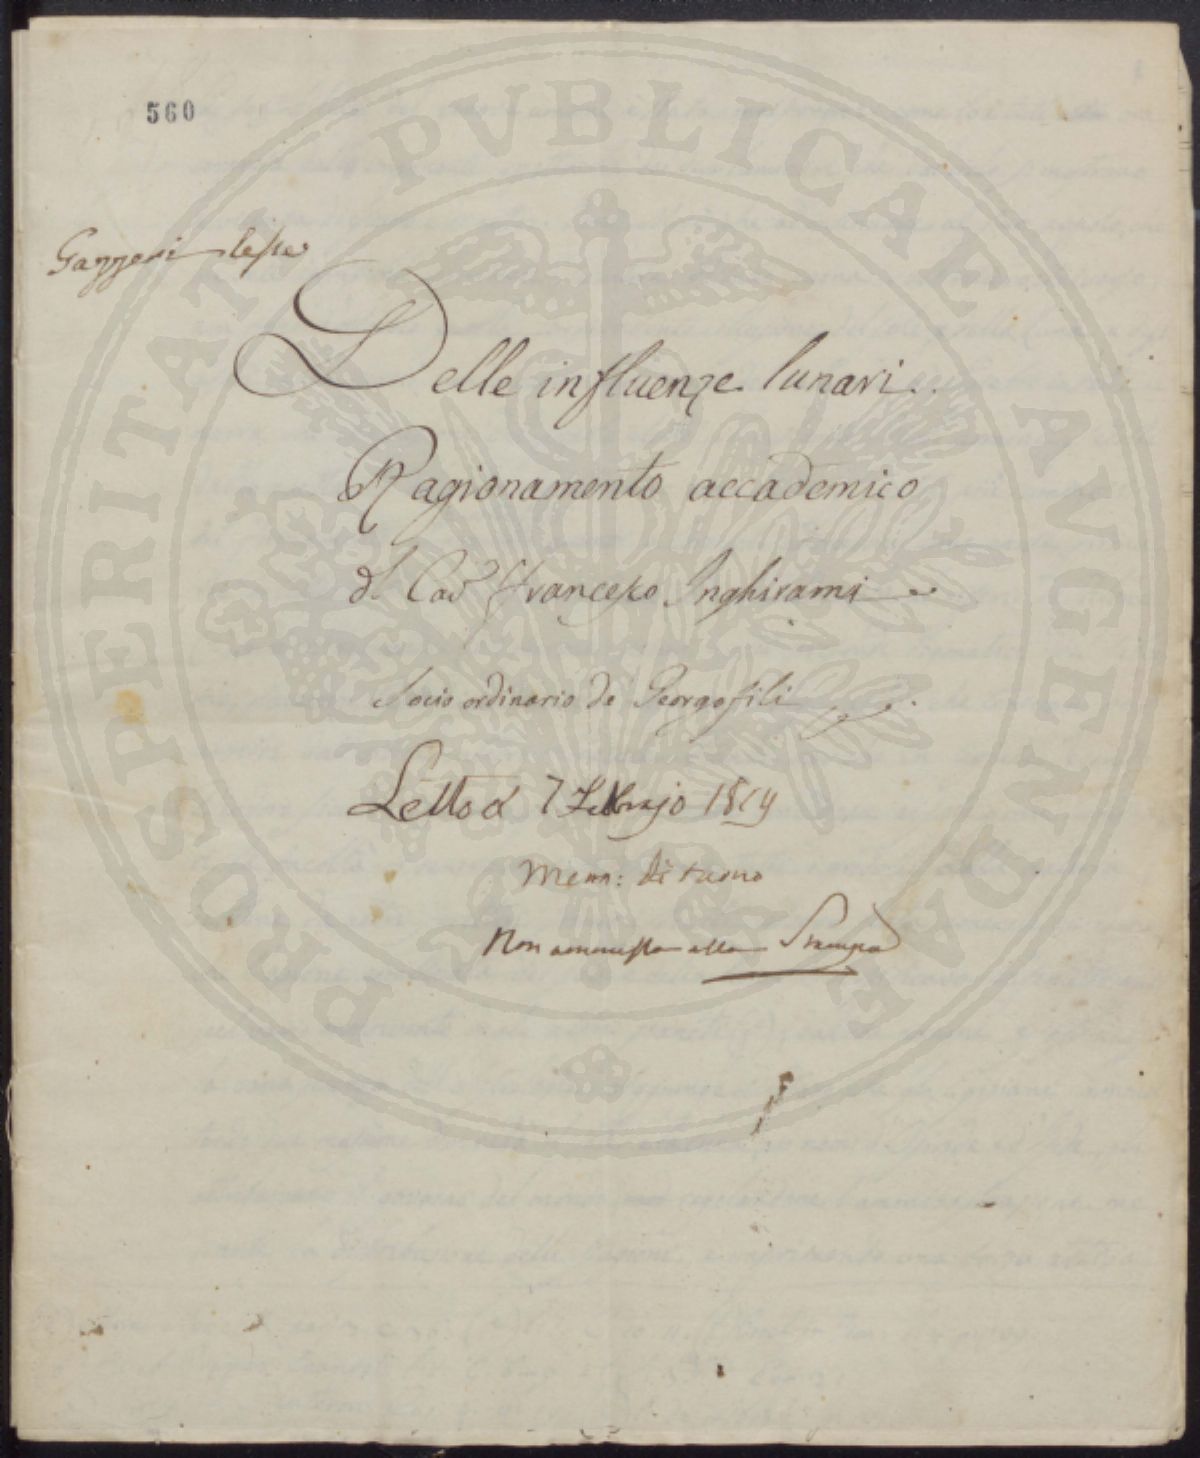 560
Gazzeri lesse
Delle influenze lunari.
Ragionamento accademico
del Cav Francesco Inghirami
Socio ordinario de Georgofili
Letto a' 7 Febbrajo 1819
Mem: di turno
Non ammessa alla Stampa
PROSPERITATI PVBLICAE AVGENDAE